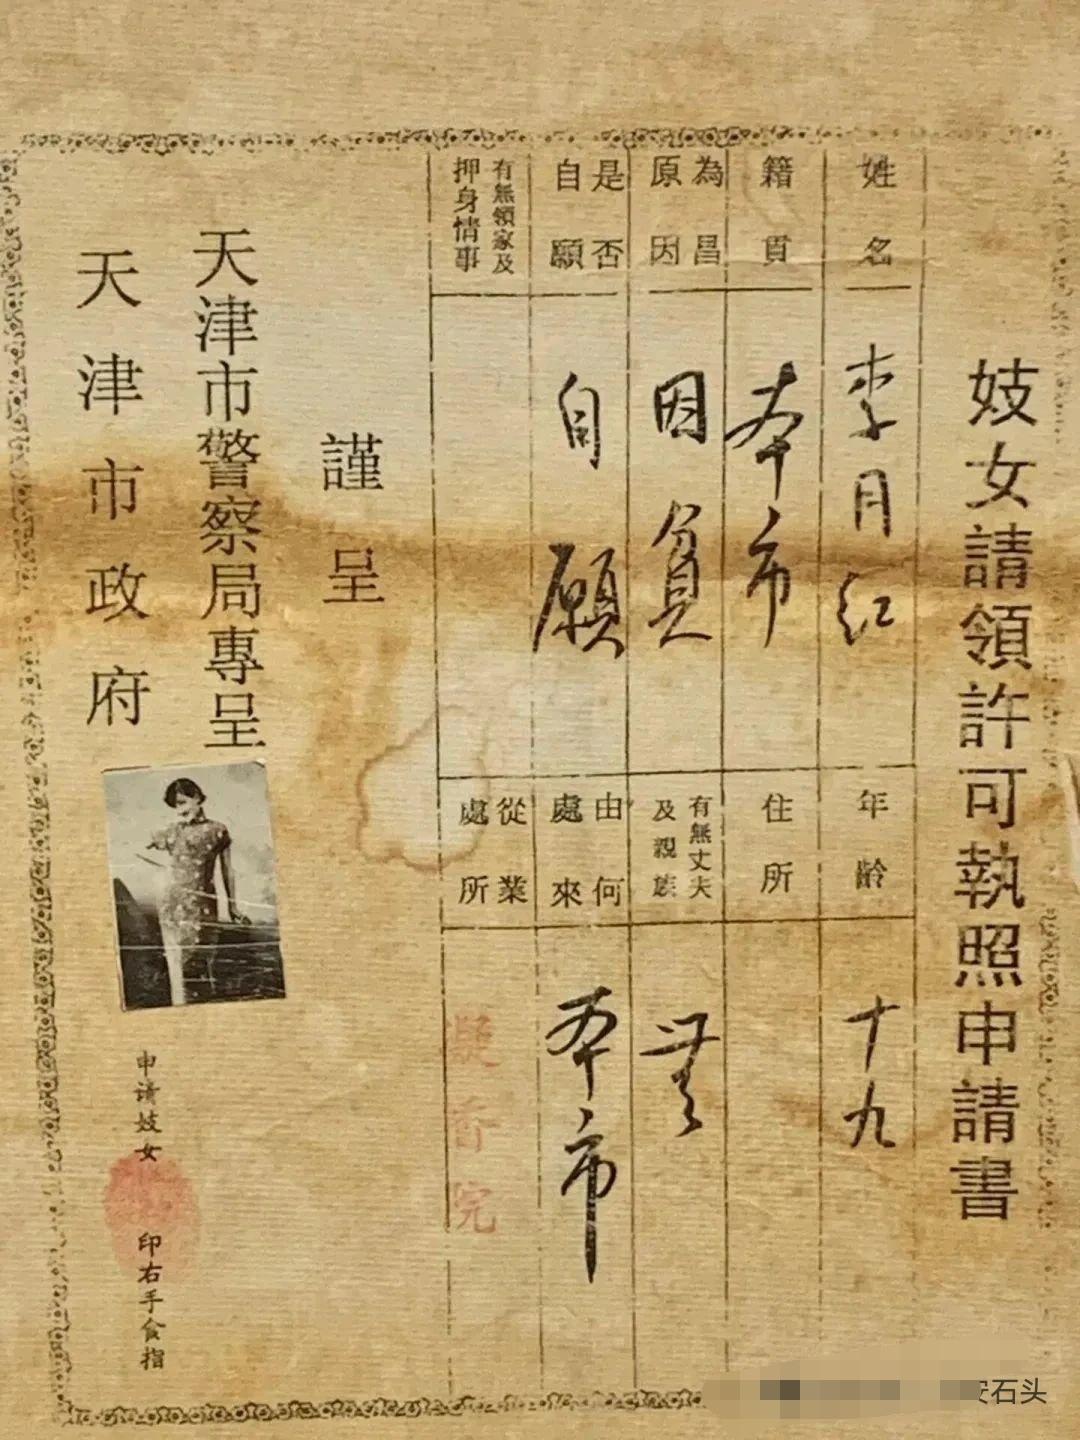 妓女請領許可執照申請書
姓名
李月红
年齡
十九
籍貫
本市
住所
為昌
原因
因貧
有無丈夫
及親族
無
是否
自願
自願
由何
處來
本市
有無領家及
押身情事
從業
處所
凝香院
謹呈
天津市警察局專呈
天津市政府
申请妓女
印右手食指
安石头